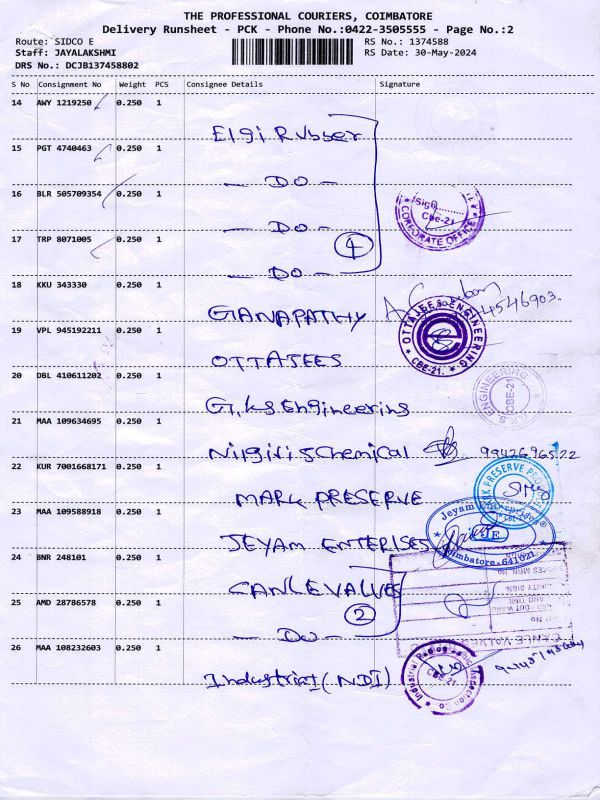 THE PROFESSIONAL COURIERS, COIMBATORE
Delivery Runsheet - PCK - Phone No.:0422-3505555 - Page No.:2
Route: SIDCO E
RS No.: 1374588
Staff: JAYALAKSHMI
RS Date: 30-May-2024
DRS No.: DCJB137458802
S No Consignment No Weight PCS Consignee Details Signature
14 AWY 1219250 0.250 1 Elgi Rubber
15 PGT 4740463 0.250 1 - DO -
16 BLR 505709354 0.250 1 - DO -
17 TRP 8071005 0.250 1 - DO -
4
Sign
CBE-21
CORPORATE OFFICE
18 KKU 343330 0.250 1 GANAPATHY
4546903.
19 VPL 945192211 0.250 1 OTTAJEES
OTTAJEES ENGINEERING
CBE-21.
20 DBL 410611202 0.250 1 G.K.S Engineering
S ENGINEERING
CBE-21
21 MAA 109634695 0.250 1 Nilgiris Chemical 9942696522
22 KUR 7001668171 0.250 1 MARK PRESERVE
PRESERVE
23 MAA 109588918 0.250 1 JEYAM ENTERISES
Jeyam Enterprises
JE
Coimbatore-641021
24 BNR 248101 0.250 1 CANLEVALVES
25 AMD 28786578 0.250 1 - DO -
2
CANLE VALVES
26 MAA 108232603 0.250 1 Industrial (NDI)
CBE-21